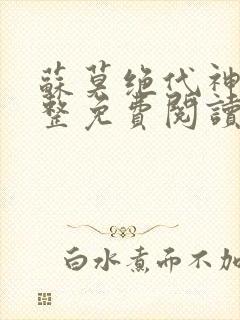 蘇莫绝代神
整免費閱讀
白水煮而不加